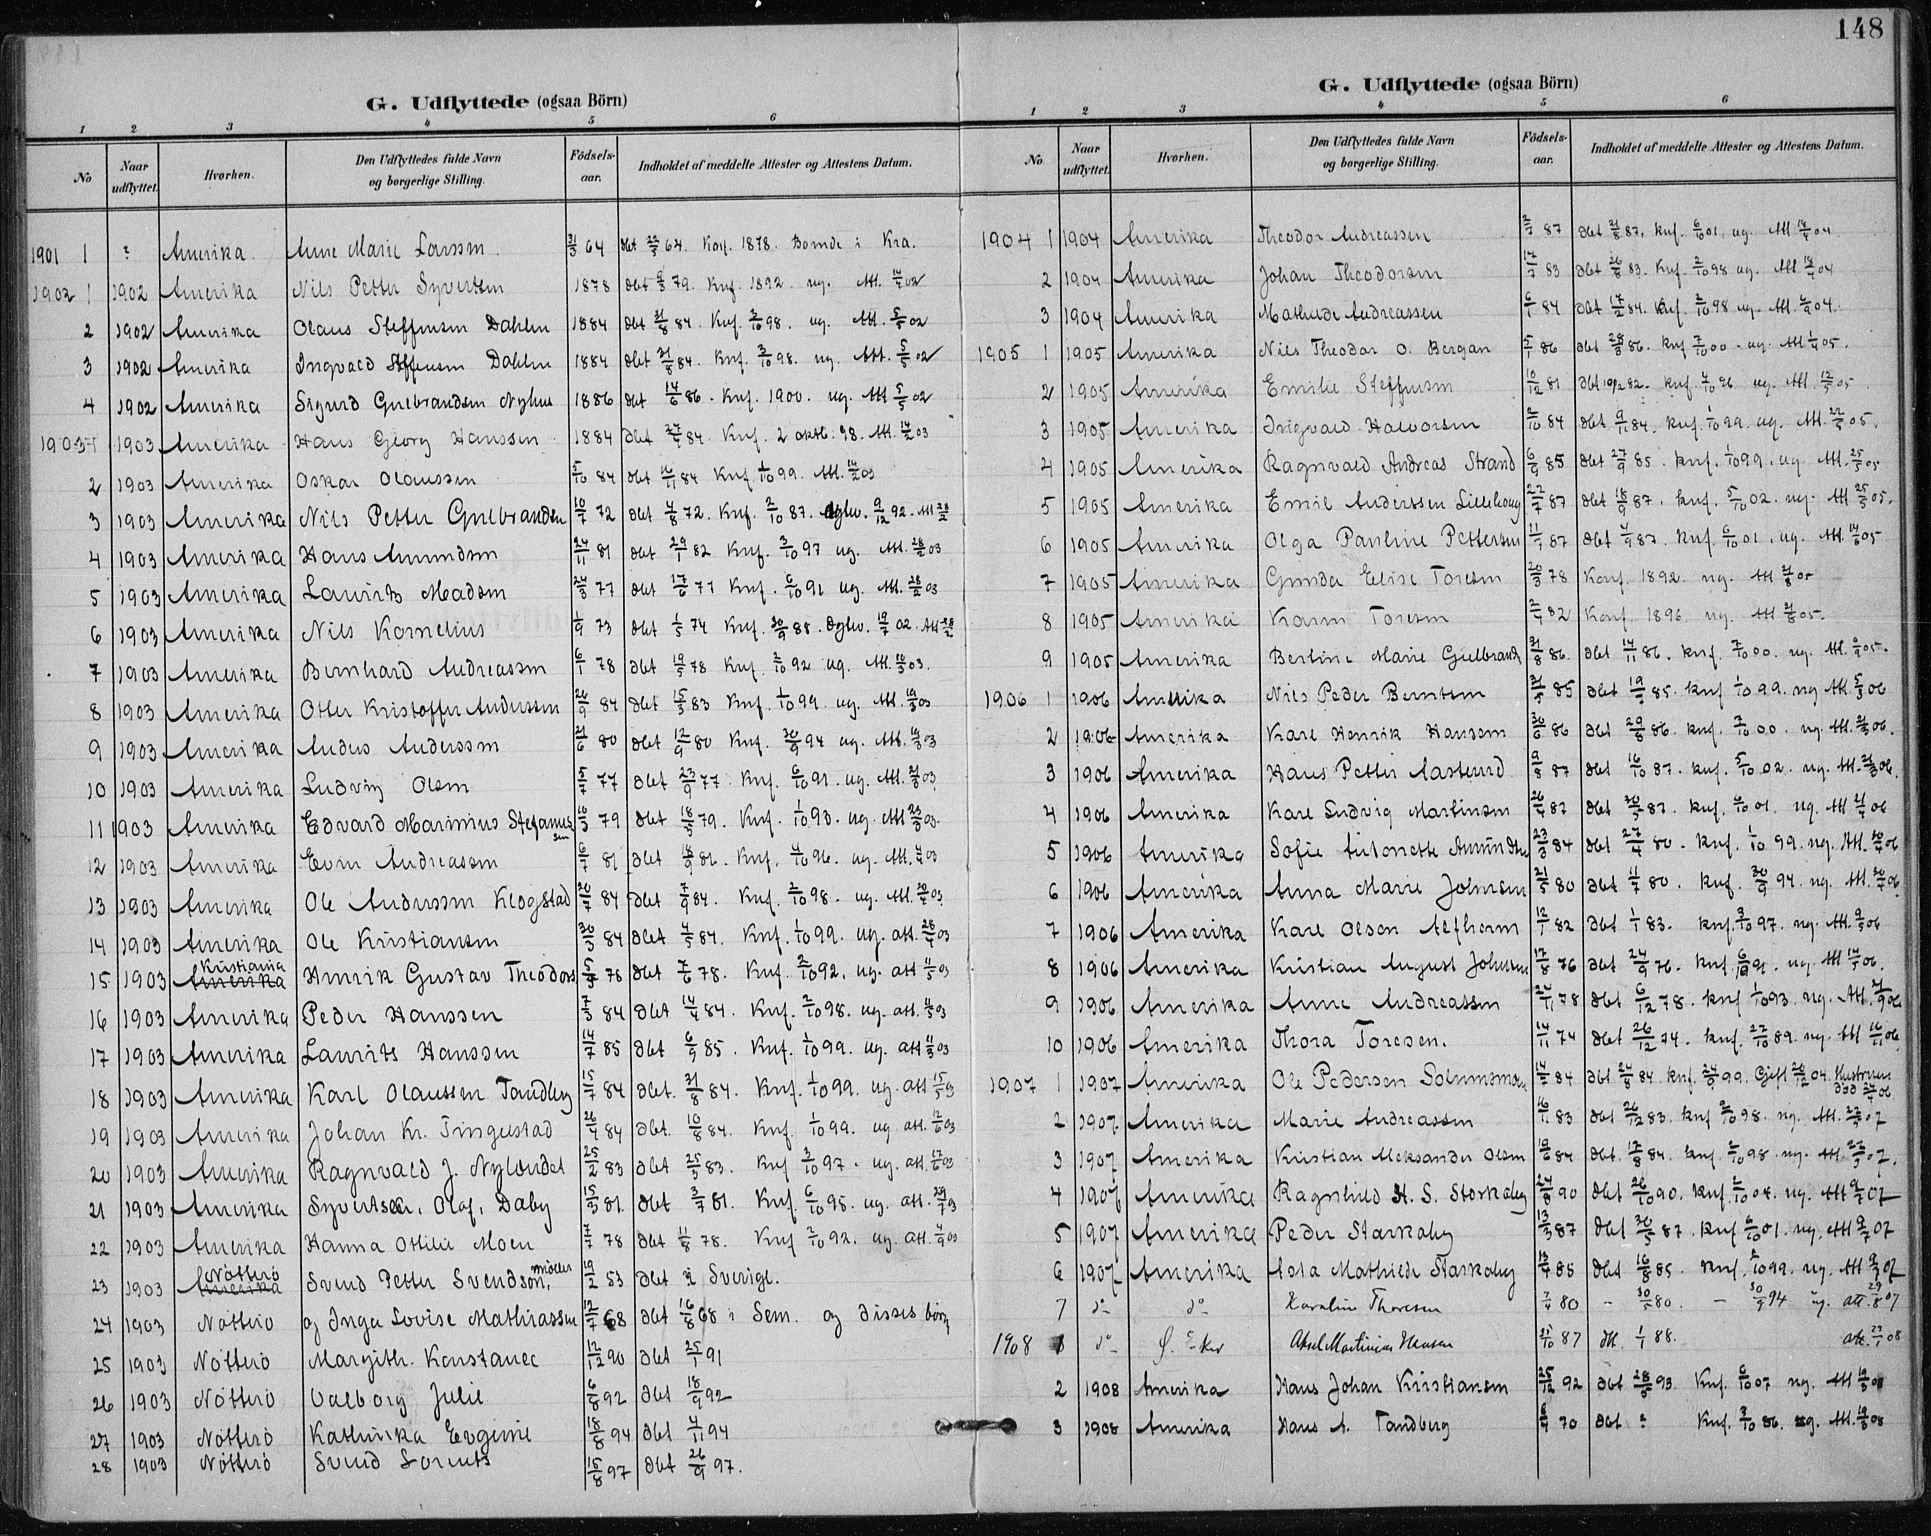 148
G. Udflyttede (ogsaa Börn)
1 2 3 4 5 6
No Naar udflyttet. Hvorhen. Den Udflyttedes fulde Navn og borgerlige Stilling. Födsels-aar. Indholdet af meddelte Attester og Attestens Datum.
1901 1 ? Amerika. Anne Marie Larssen 31/3 64 Konf. 1878. Boende i Kra.
1902 1 1902 Amerika Nils Petter Syvertsen 1878 79. Knf. 1892. ug. Att. 02
2 1902 Amerika Olaus Steffensen Dahlen 1884 dbt 31/8 84. Knf. 2/10 98. ug. Att. 5/5 02
3 1902 Amerika Ingvald Steffensen Dahlen 1884 dbt 31/8 84. Knf. 2/10 98. ug. Att. 5/5 02
4 1902 Amerika Sigurd Gulbrandsen Nyhus 1886 dbt 14/6 86. Knf. 1900. ug. Att 5/5 02
1903 1 1903 Amerika Hans Georg Hanssen 1884 dbt 27/4 84. Knf. 2 oktb. 98. Att. 14/2 03
2 1903 Amerika Oskar Olaussen 5/10 84 dbt 16/11 84 Knf. 1/10 99. Att. 14/2 03
3 1903 Amerika Nils Petter Gulbrandsen 10/7 72 dbt 4/8 72. Knf. 2/10 87. 9/12 92. Att 28/2
4 1903 Amerika Hans Amundsen 24/11 81 dbt 29/1 82 Knf. 3/10 97 ug. Att. 28/2 03
5 1903 Amerika Laurits Madsen 77 dbt 17/6 77 Knf. 91 ug. Att. 28/2 03
6 1903 Amerika Nils Kornelius 1/9 73 dbt 1/5 74 Knf. 30/9 88. 02. Att 28/2
7 1903 Amerika Bernhard Andreassen 6/1 78 dbt 19/5 78 Knf. 2/10 92 ug. Att. 03.
8 1903 Amerika Otter Kristoffer Anderssen 26/9 84 dbt 15/3 83 Knf. 1/10 99. ug. Att. 03
9 1903 Amerika Anders Anderssen 21/6 80 dbt 12/9 80 Knf. 30/9 94 ug. Att. 03
10 1903 Amerika Ludvig Olsen 5/7 77 dbt 23/9 77 Knf. 91. ug. Att. 03
11 1903 Amerika Edvard Marinius Stefanussen 79 dbt 18/5 79. Knf. 1/10 93. ug. Att 03.
12 1903 Amerika Even Andreassen 6/7 81 dbt 18/9 81. Knf. 4/10 96. ug. Att. 03
13 1903 Amerika Ole Anderssen Klogstad 20/7 84 dbt 7/9 84. Knf. 2/10 98. ug. Att. 03.
14 1903 Amerika Ole Kristiansen 30/3 84 dbt 4/5 84. Knf. 1/10 99. ug. att. 28/4 03
15 1903 Kristiania Amerika Henrik Gustav Theodors 78 dbt 7/6 78. Knf. 2/10 92. ug. att 03
16 1903 Amerika Peder Hanssen 7/3 84 dbt 14/4 84. Knf. 2/10 98. ug. att. 03
17 1903 Amerika Laurits Hanssen 14/7 85 dbt 6/9 85. Knf. 1/10 99. ug. att 11/5 03
18 1903 Amerika Karl Olaussen Tandberg 15/7 84 dbt. 31/8 84. Knf. 1/10 99. ug. att 15/5 03
19 1903 Amerika Johan Kr. Tingestad 26/4 84 dbt. 10/8 84. Knf. 1/10 99. ug. att. 03
20 1903 Amerika Ragnvald J. Nylendet 25/2 83 dbt 25/3 83. Knf 3/10 97. ug. att. 03
21 1903 Amerika Syvertsen, Olaf, Daby 15/3 81. dbt 3/7 81. Knf. 6/10 95. ug. att. 03
22 1903 Amerika Hanna Otilie Moen 7/7 78 dbt 11/8 78. Knf 2/10 92. ug. att. 03
23 1903 Nötterö Amerika Svend Petter Svendsen, møller 19/2 53 dbt i Sverige.
24 1903 Nötterö og Inga Lovise Mathiassen 12/7 68 dbt 16/8 68 i Sem. og disses börn
25 1903 Nötterö Margith. Konstance 12/12 90 dbt 25/1 91
26 1903 Nötterö Valborg Julie 6/8 92 dbt 18/9 92
27 1903 Nötterö Kathinka Evgenie 18/8 94 dbt 4/11 94
28 1903 Nötterö Svend Lorents 15/8 97 dbt 26/9 97.
G. Udflyttede (ogsaa Börn)
1 2 3 4 5 6
No Naar udflyttet. Hvorhen. Den Udflyttedes fulde Navn og borgerlige Stilling. Födsels-aar. Indholdet af meddelte Attester og Attestens Datum.
1904 1 1904 Amerika Theodor Andreassen 87 dbt 21/8 87. Knf. 6/10 01. ug. Att 04
2 1904 Amerika Johan Theodorsen 17/7 83 dbt 26/8 83. Knf. 2/10 98 ug. Att. 04
3 1904 Amerika Mathilde Andreassen 6/1 84 dbt 17/2 84. Knf. 2/10 98 ug. Att. 04.
1905 1 1905 Amerika Nils Theodor O. Bergan 86 dbt 28/3 86. Knf 7/10 00. ug. Att 05.
2 1905 Amerika Emilie Steffensen 10/12 81 dbt 82. Knf. 4/10 96 ug. Att. 12/5 05
3 1905 Amerika Ingvald Halvorsen 84 dbt 9/11 84. Knf. 1/10 99. ug. Att. 22/5 05.
4 1905 Amerika Ragnvald Andreas Strand 6/9 85 dbt 27/9 85. Knf. 1/10 99. ug. Att. 25/5 05
5 1905 Amerika Emil Anderssen Lillehaug 22/7 87 dbt 18/9 87. Knf. 5/10 02. ug. Att 25/5 05.
6 1905 Amerika Olga Pauline Pettersen 87 dbt 4/9 87. Knf. 6/10 01. ug. Att. 14/6 05
7 1905 Amerika Gunda Elise Toresen 78 Konf. 1892. ug. Att 05
8 1905 Amerika Karen Toresen 82 Konf. 1896. ug. Att 05.
9 1905 Amerika Bertine Marie Gulbrands 31/8 86. dbt 14/11 86. Knf. 7/10 00. ug. Att. 05.
1906 1 1906 Amerika Nils Peder Berntsen 85 dbt 19/7 85. Knf 1/10 99. ug Att 5/3 06
2 1906 Amerika Karl Henrik Hansen 86 dbt 29/8 86. Knf. 7/10 00. ug. Att. 06.
3 1906 Amerika Hans Petter Aaslund 9/8 87 dbt 16/10 87. Knf. 5/10 02. ug. Att. 06.
4 1906 Amerika Karl Ludvig Martinsen 26/4 87 dbt 87. Knf. 6/10 01. ug. Att 06
5 1906 Amerika Sofie Antonette Amundsen 23/3 84 dbt 27/4 80. Knf. 1/10 99. ug. Att. 06
6 1906 Amerika Anna Marie Johnsen 21/5 80 dbt 11/7 80. Knf. 30/9 94. ug. Att. 06
7 1906 Amerika Karl Olsen Alfheim 82 dbt 1/1 83. Knf. 3/10 97. ug. Att. 06
8 1906 Amerika Kristian August Johnsen 17/8 76 dbt 24/9 76. Knf. 91. ug. Att 06.
9 1906 Amerika Anne Andreassen 78 dbt 6/12 78. Knf 1/10 93. ug. Att. 06
10 1906 Amerika Thora Toresen. 14/11 74 dbt 26/12 74. Knf. 27/10 89. ug. Att 16/11 06
1907 1 1907 Amerika Ole Pedersen 84 dbt 24/8 84. Knf. 24/9 99. Gift 04. Hustruen död 06
2 1907 Amerika Marie Andreassen 16/11 83 dbt 26/12 83. Knf 2/10 98. ug. Att. 07
3 1907 Amerika Kristian Aleksander Olsen 84 dbt. 17/8 84. Knf. 2/10 98. ug. Att 07.
4 1907 Amerika Ragnhild H. S. Storkaby 24/8 90 dbt 26/10 90. Knf. 2/10 04. ug. Att 07
5 1907 Amerika Peder Starkaby 13/3 87 dbt 30/5 87. Knf 6/10 01. ug. Att 07
6 1907 Amerika Asta Mathilde Starkaby 85 dbt 16/8 85. Knf. 1/10 99. ug. Att 07
7 do do Karoline Thoresen 7/4 80 - 30/5 80. - 30/9 94 ug. att. 29/8 07
1908 1 do Ø. Eker Aksel Martinius Hansen 25/10 87 dbt. 1/1 88. att. 08
2 1908 Amerika Hans Johan Kristiansen 25/12 92 dbt 28/5 93. Knf. 6/10 07 ug. Att 08
3 1908 Amerika Hans A. Tandberg 70 dbt ? Knf. 3/10 86. ug. Att. 08